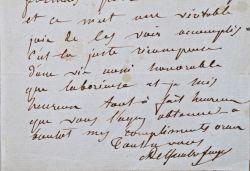 et ce m'est une véritable
joie de les voir accomplis
C'est la juste récompense
d'une vie aussi honorable
que laborieuse et je suis
heureux tout à fait heureux
que vous l'ayez obtenue à
bientôt mes compliments
Tout à vous